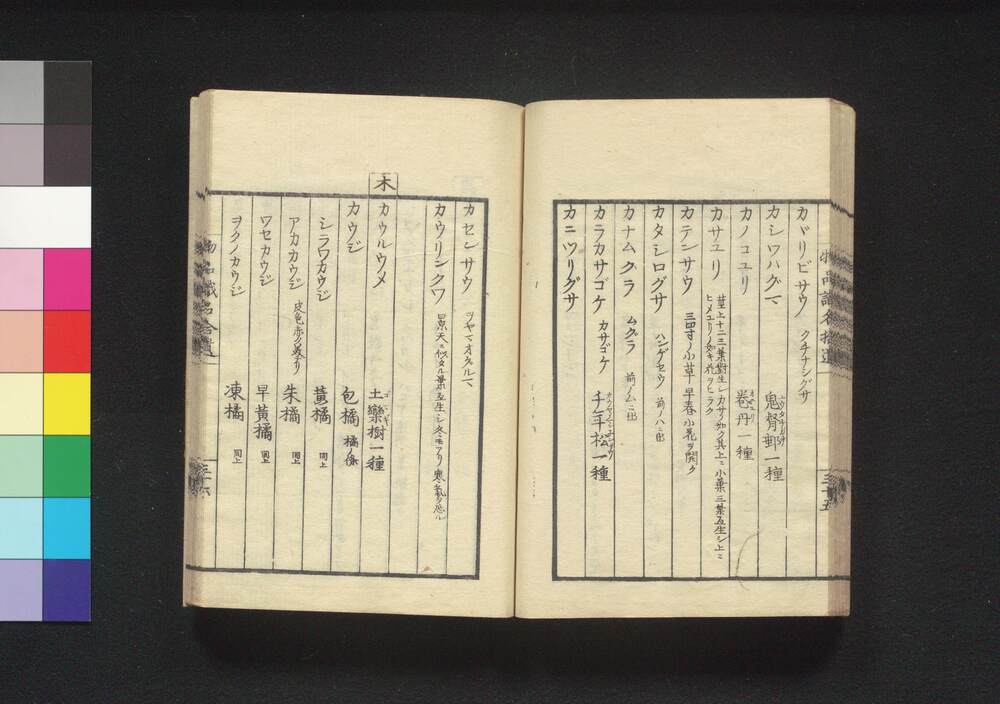 カバリビサウ クチナシグサ
カシワハグマ 鬼督郵一種
カノコユリ 巻丹一種
カサユリ 莖上十二三葉對生シカサノ如ク其上ニ小葉三葉互生シ上ニ
ヒメユリノ如キ花ヲヒラク
カテンサウ 三四寸ノ小草早春小花ヲ開ク
カタシログサ ハンゲセウ 前ノハニ出
カナムグラ ムグラ 前ノムニ出
カラカサゴケ カサゴケ 千年松一種
カニツリグサ
三十五
カセンサウ ツヤマオグルマ
カウリンクワ 景天ニ似タル葉互生シ冬モアリ寒氣ヲ恐ル
木
カウルウメ 土欒樹一種
カウジ 包橘 橘ノ條
シラワカウジ 黄橘 同上
アカカウジ 皮色赤ク美ナリ 朱橘 同上
ワセカウジ 早黄橘 同上
ヲクノカウジ 凍橘 同上
物品識名拾遺
三十六